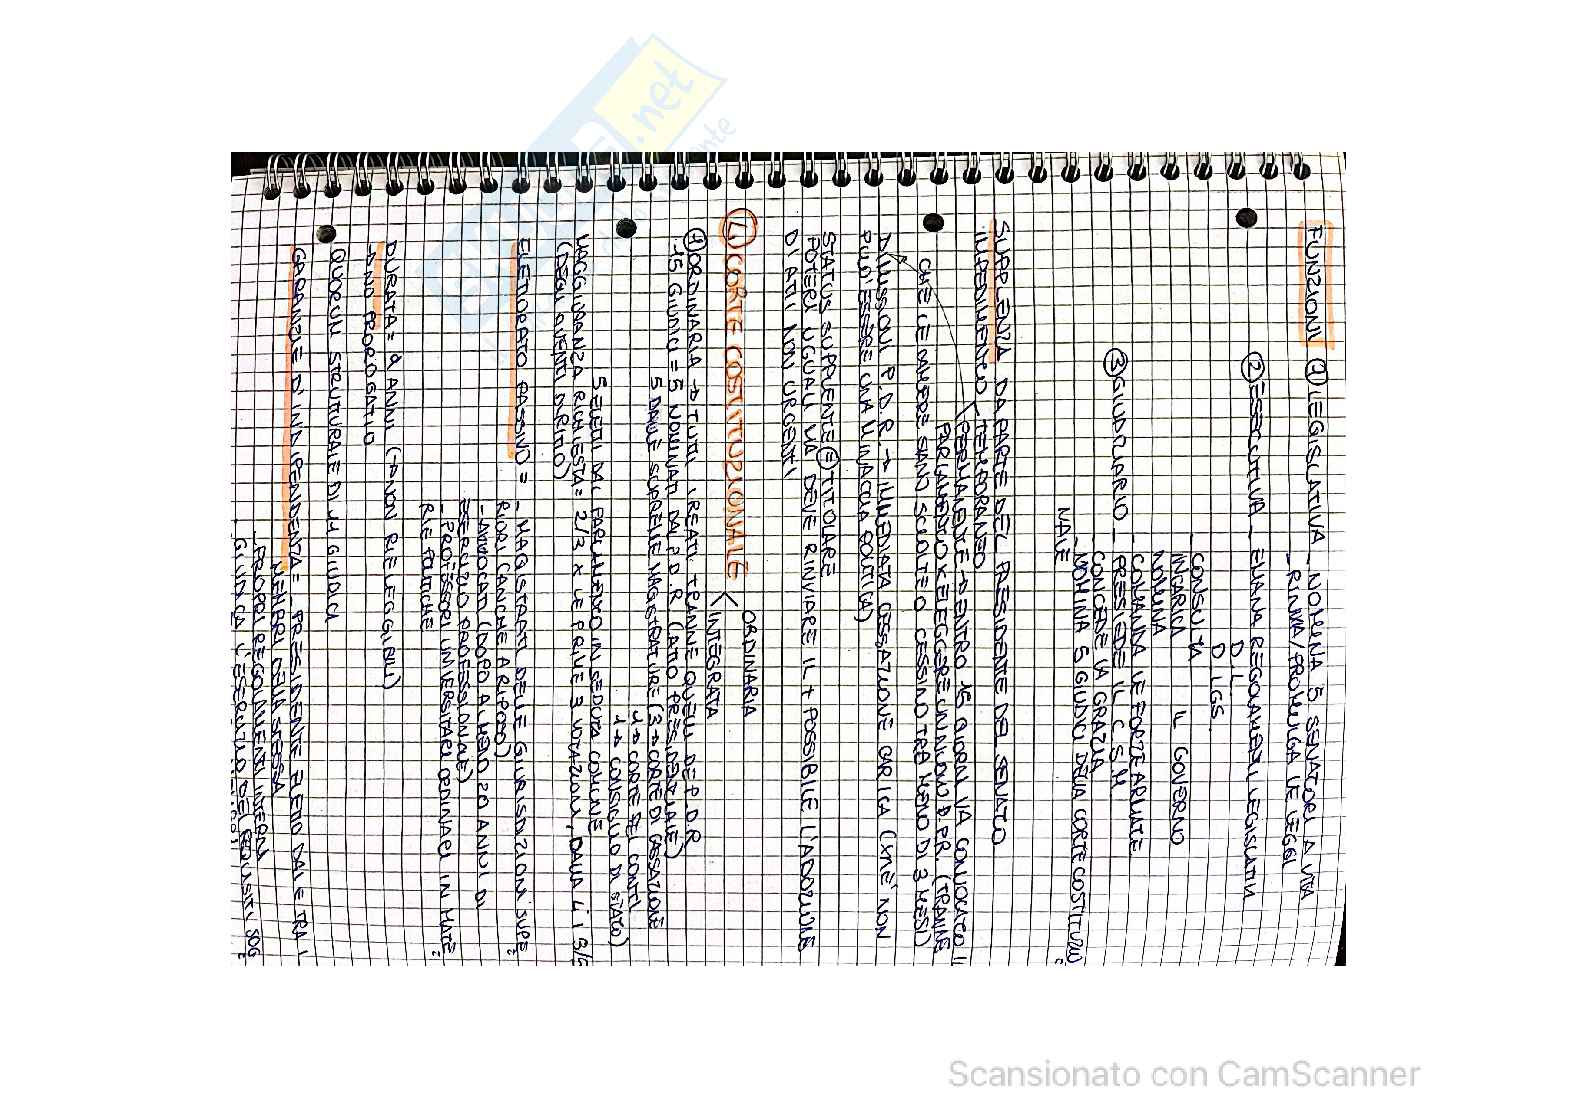 FUNZIONI ① LEGISLATIVA _ NOMINA 5 SENATORI A VITA
_ RINVIA/PROMULGA LE LEGGI
② ESECUTIVA _ EMANA REGOLAMENTI LEGISLATIVI
D.L.
D.LGS.
_ CONSULTA
INCARICA IL GOVERNO
NOMINA
_ COMANDA LE FORZE ARMATE
③ GIUDIZIARIO _ PRESIEDE IL C S M
CONCEDE LA GRAZIA
_ NOMINA 5 GIUDICI DELLA CORTE COSTITUZIO
NALE
SUPPLENZA DA PARTE DEL PRESIDENTE DEL SENATO
IMPEDIMENTO TEMPORANEO
PERMANENTE → ENTRO 15 GIORNI VA CONVOCATO IL
PARLAMENTO X ELEGGERE UN NUOVO P.R. (TRANNE
CHE LE CAMERE SIANO SCIOLTE O CESSINO TRA MENO DI 3 MESI)
DIMISSIONI P.D.R. → IMMEDIATA CESSAZIONE CARICA (XKÉ NON
PUÒ ESSERE UNA MINACCIA POLITICA)
STATUS SUPPLENTE = TITOLARE
POTERI UGUALI MA DEVE RINVIARE IL + POSSIBILE L'ADOZIONE
DI ATTI NON URGENTI
④ CORTE COSTITUZIONALE
ORDINARIA
INTEGRATA
① ORDINARIA → TUTTI I REATI TRANNE QUELLI DEL P.D.R
15 GIUDICI = 5 NOMINATI DAL P.D.R (ATTO PRESIDENZIALE)
5 DALLE SUPREME MAGISTRATURE (3 → CORTE DI CASSAZIONE
1 → CORTE DEI CONTI
1 → CONSIGLIO DI STATO)
5 ELETTI DAL PARLAMENTO IN SEDUTA COMUNE
MAGGIORANZA RICHIESTA = 2/3 X LE PRIME 3 VOTAZIONI, DALLA 4 I 3/5
(DEGLI AVENTI DIRITTO)
ELETTORATO PASSIVO = _ MAGISTRATI DELLE GIURISDIZIONI SUPE
RIORI (ANCHE A RIPOSO)
_ AVVOCATI (DOPO ALMENO 20 ANNI DI
ESERCIZIO PROFESSIONALE)
_ PROFESSORI UNIVERSITARI ORDINARI IN MATE
RIE GIURIDICHE
DURATA = 9 ANNI (→ NON RIELEGGIBILI)
→ NO PROROGATIO
QUORUM STRUTTURALE DI 11 GIUDICI
GARANZIE D'INDIPENDENZA = _ PRESIDENTE ELETTO DAI E TRA I
MEMBRI DELLA STESSA
_ PROPRI REGOLAMENTI INTERNI
_ GIUDICA L'ESERCIZIO DEI REQUISITI SOG
Scansionato con CamScanner